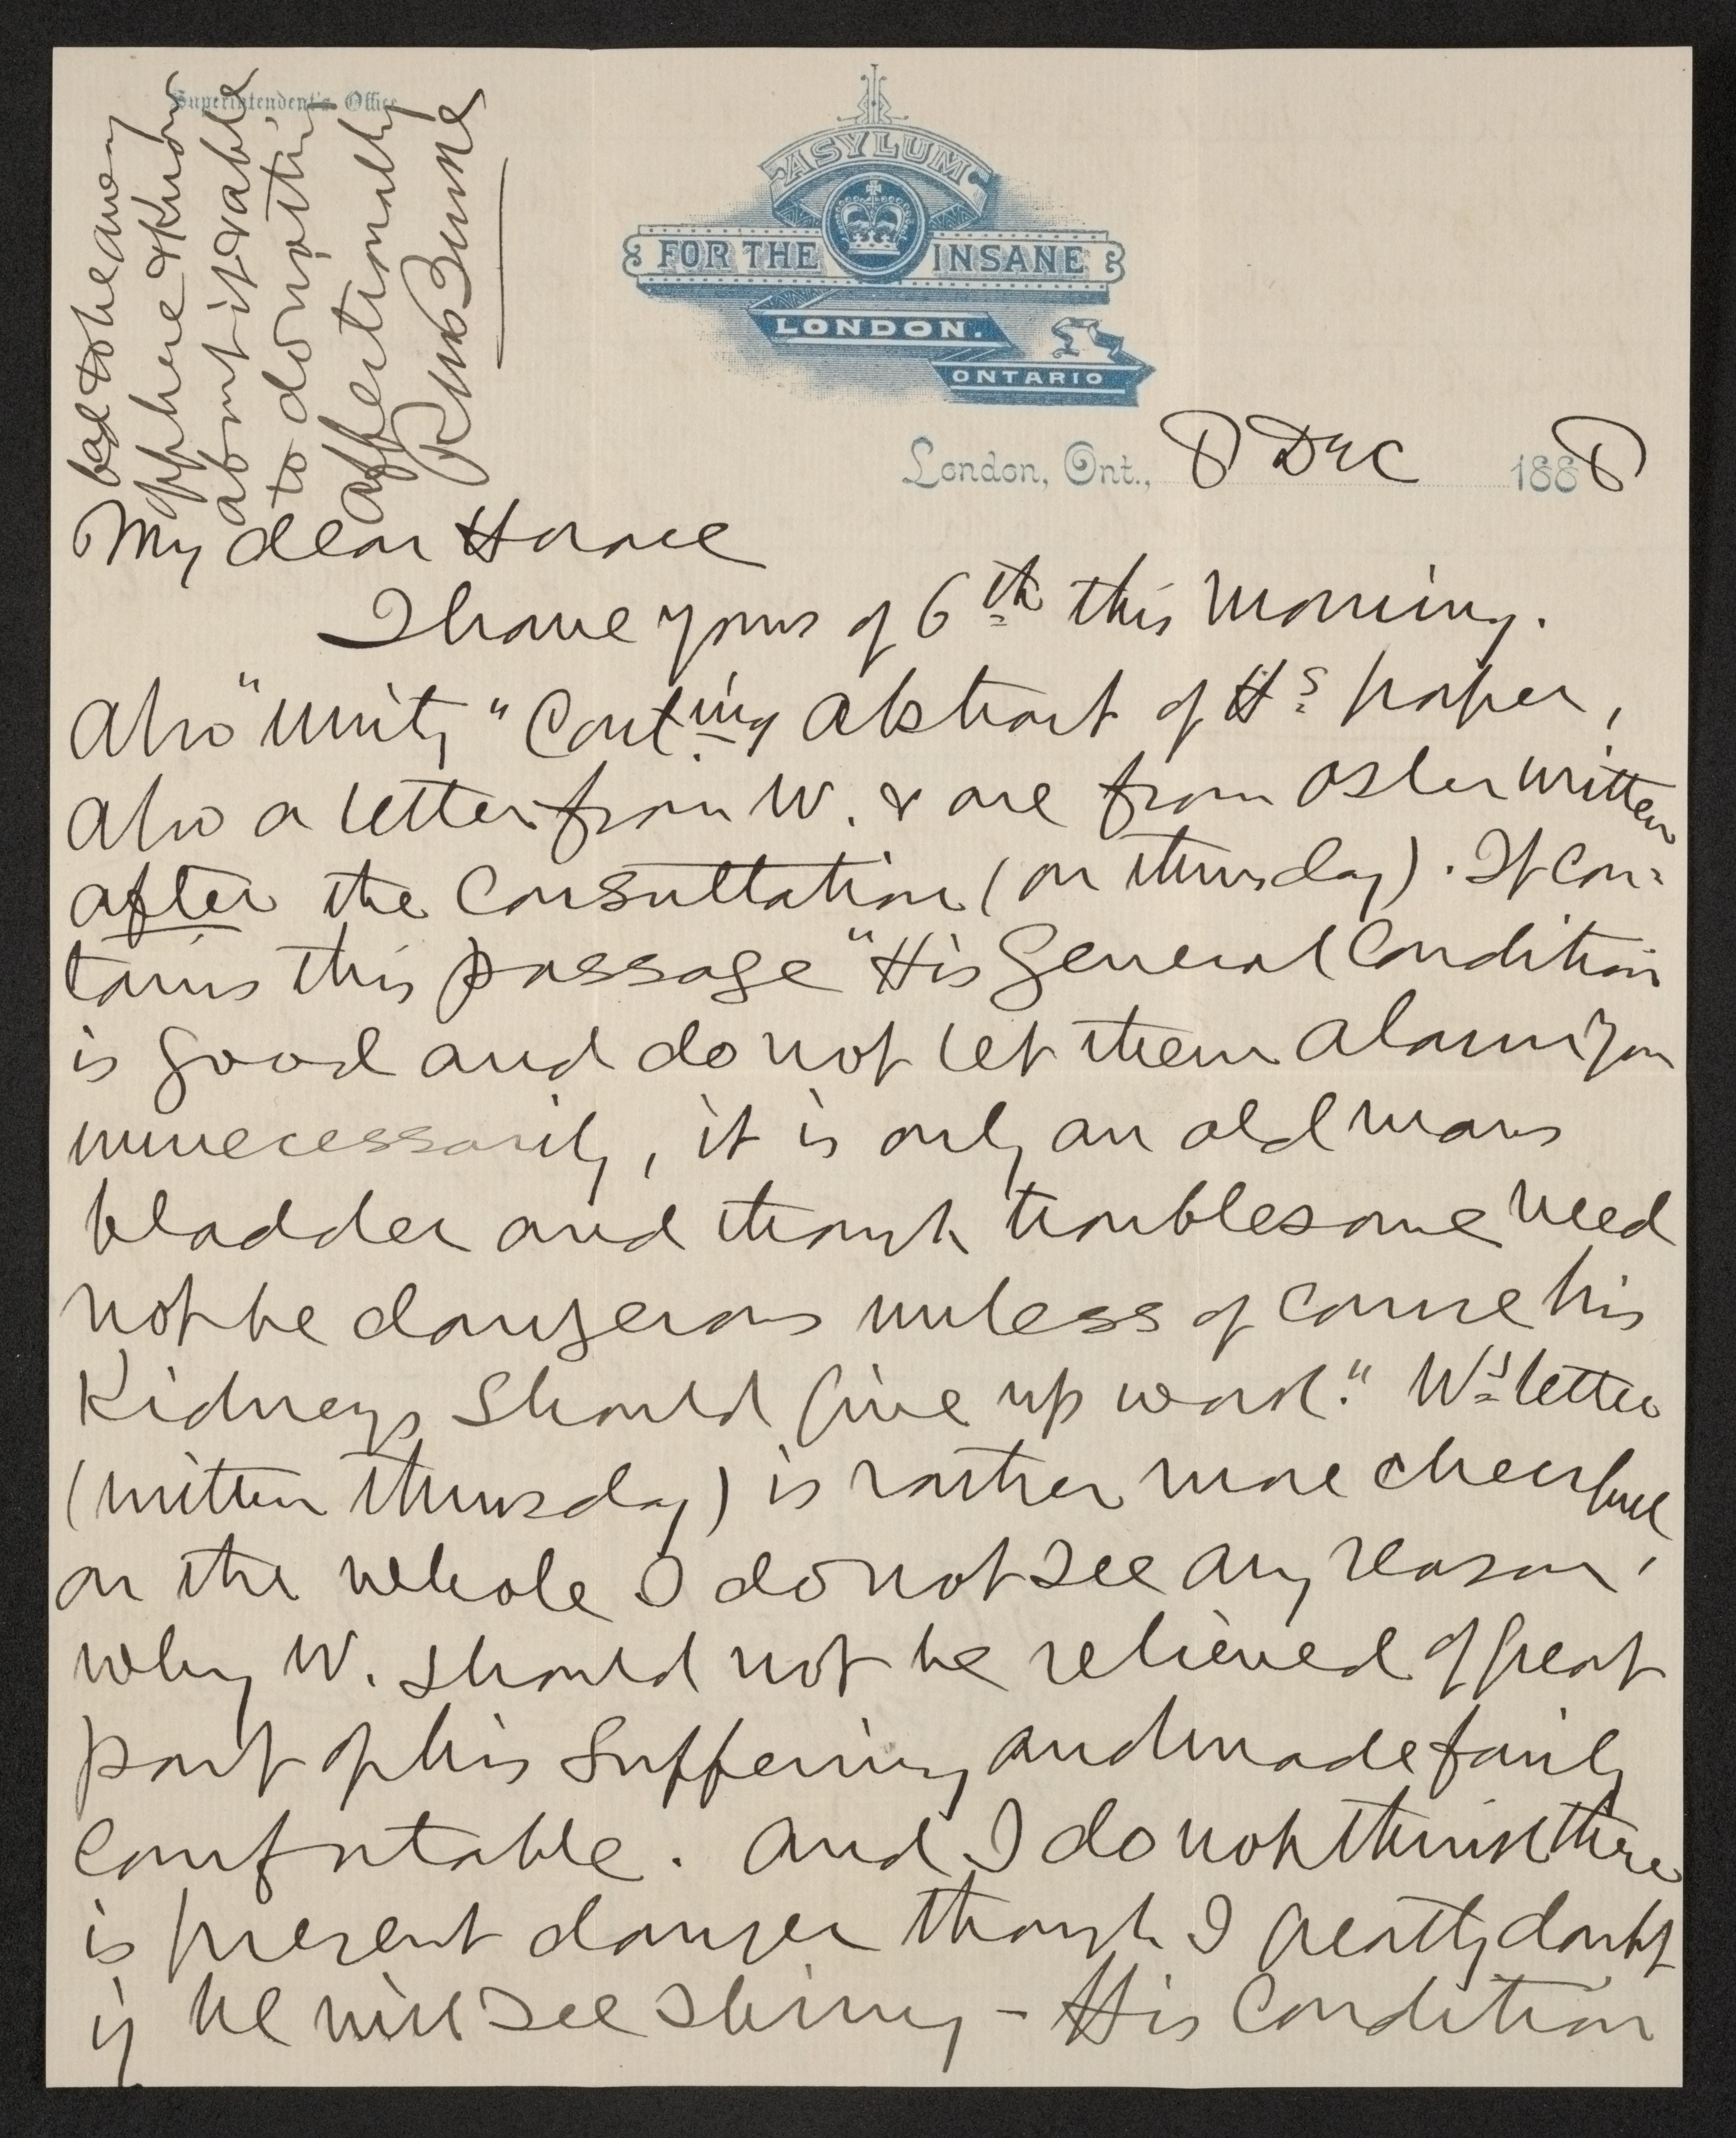 Superintendent's Office
ASYLUM
FOR THE INSANE
LONDON.
ONTARIO
London, Ont., 8 Dec 1888
My dear Horace
I have yours of 6th this morning.
Also "Unity" Conting abstract of Hs paper,
also a letter from W. & one from Osler written
after the consultation (on thursday). It con-
tains this passage "His general condition
is good and do not let them alarm you
unnecessarily, it is only an old mans
bladder and though troublesome need
not be dangerous unless of course his
Kidneys should give up work." W's letter
(written thursday) is rather more cheerful
on the whole I do not see any reason,
why W. should not be relieved of great
part of his suffering and made fairly
comfortable. And I do not think there
is present danger though I greatly doubt
if he will see spring - His condition
bad to be away
up here & know
about it & able
to do nothing
affectionally
RM Bucke